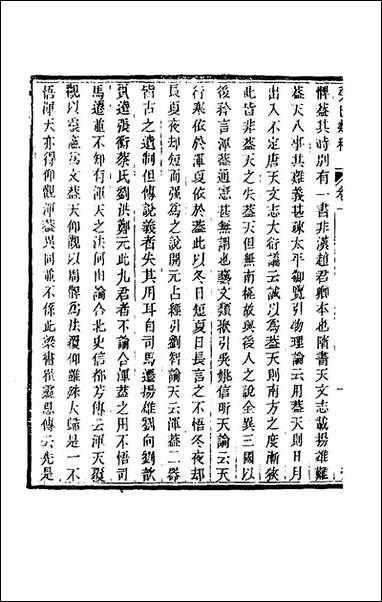 癸巳類稿 卷十
惲葢其時別有一書非漢趙君卿本也隋書天文志載揚雄難
葢天八事其難義甚疎太平御覽引物理論云用葢天則日月
出入不定唐天文志大衍議云誠以爲葢天則南方之度漸狹
此皆非葢天之失葢天但無南極故與後人之說全異三國以
後矜言渾葢通憲甚無謂也藝文類聚引吳姚信昕天論云天
行寒依於渾夏依於葢此以冬日短夏日長言之不悟冬夜却
長夏夜却短而强爲之說開元占經引劉智論天云渾葢二器
皆古之遺制但傳說義者失其用耳自司馬遷揚雄劉向劉歆
賈逵張衡蔡氏劉洪鄭元此九君者不論合渾葢之用不悟司
馬遷並不知有渾天之法何由論合北史信都芳傳云渾天覆
觀以靈憲爲文葢天仰觀以周髀爲法覆仰雖殊大歸是一不
悟渾天亦得仰觀渾葢異同並不係此梁書崔靈恩傳云先是